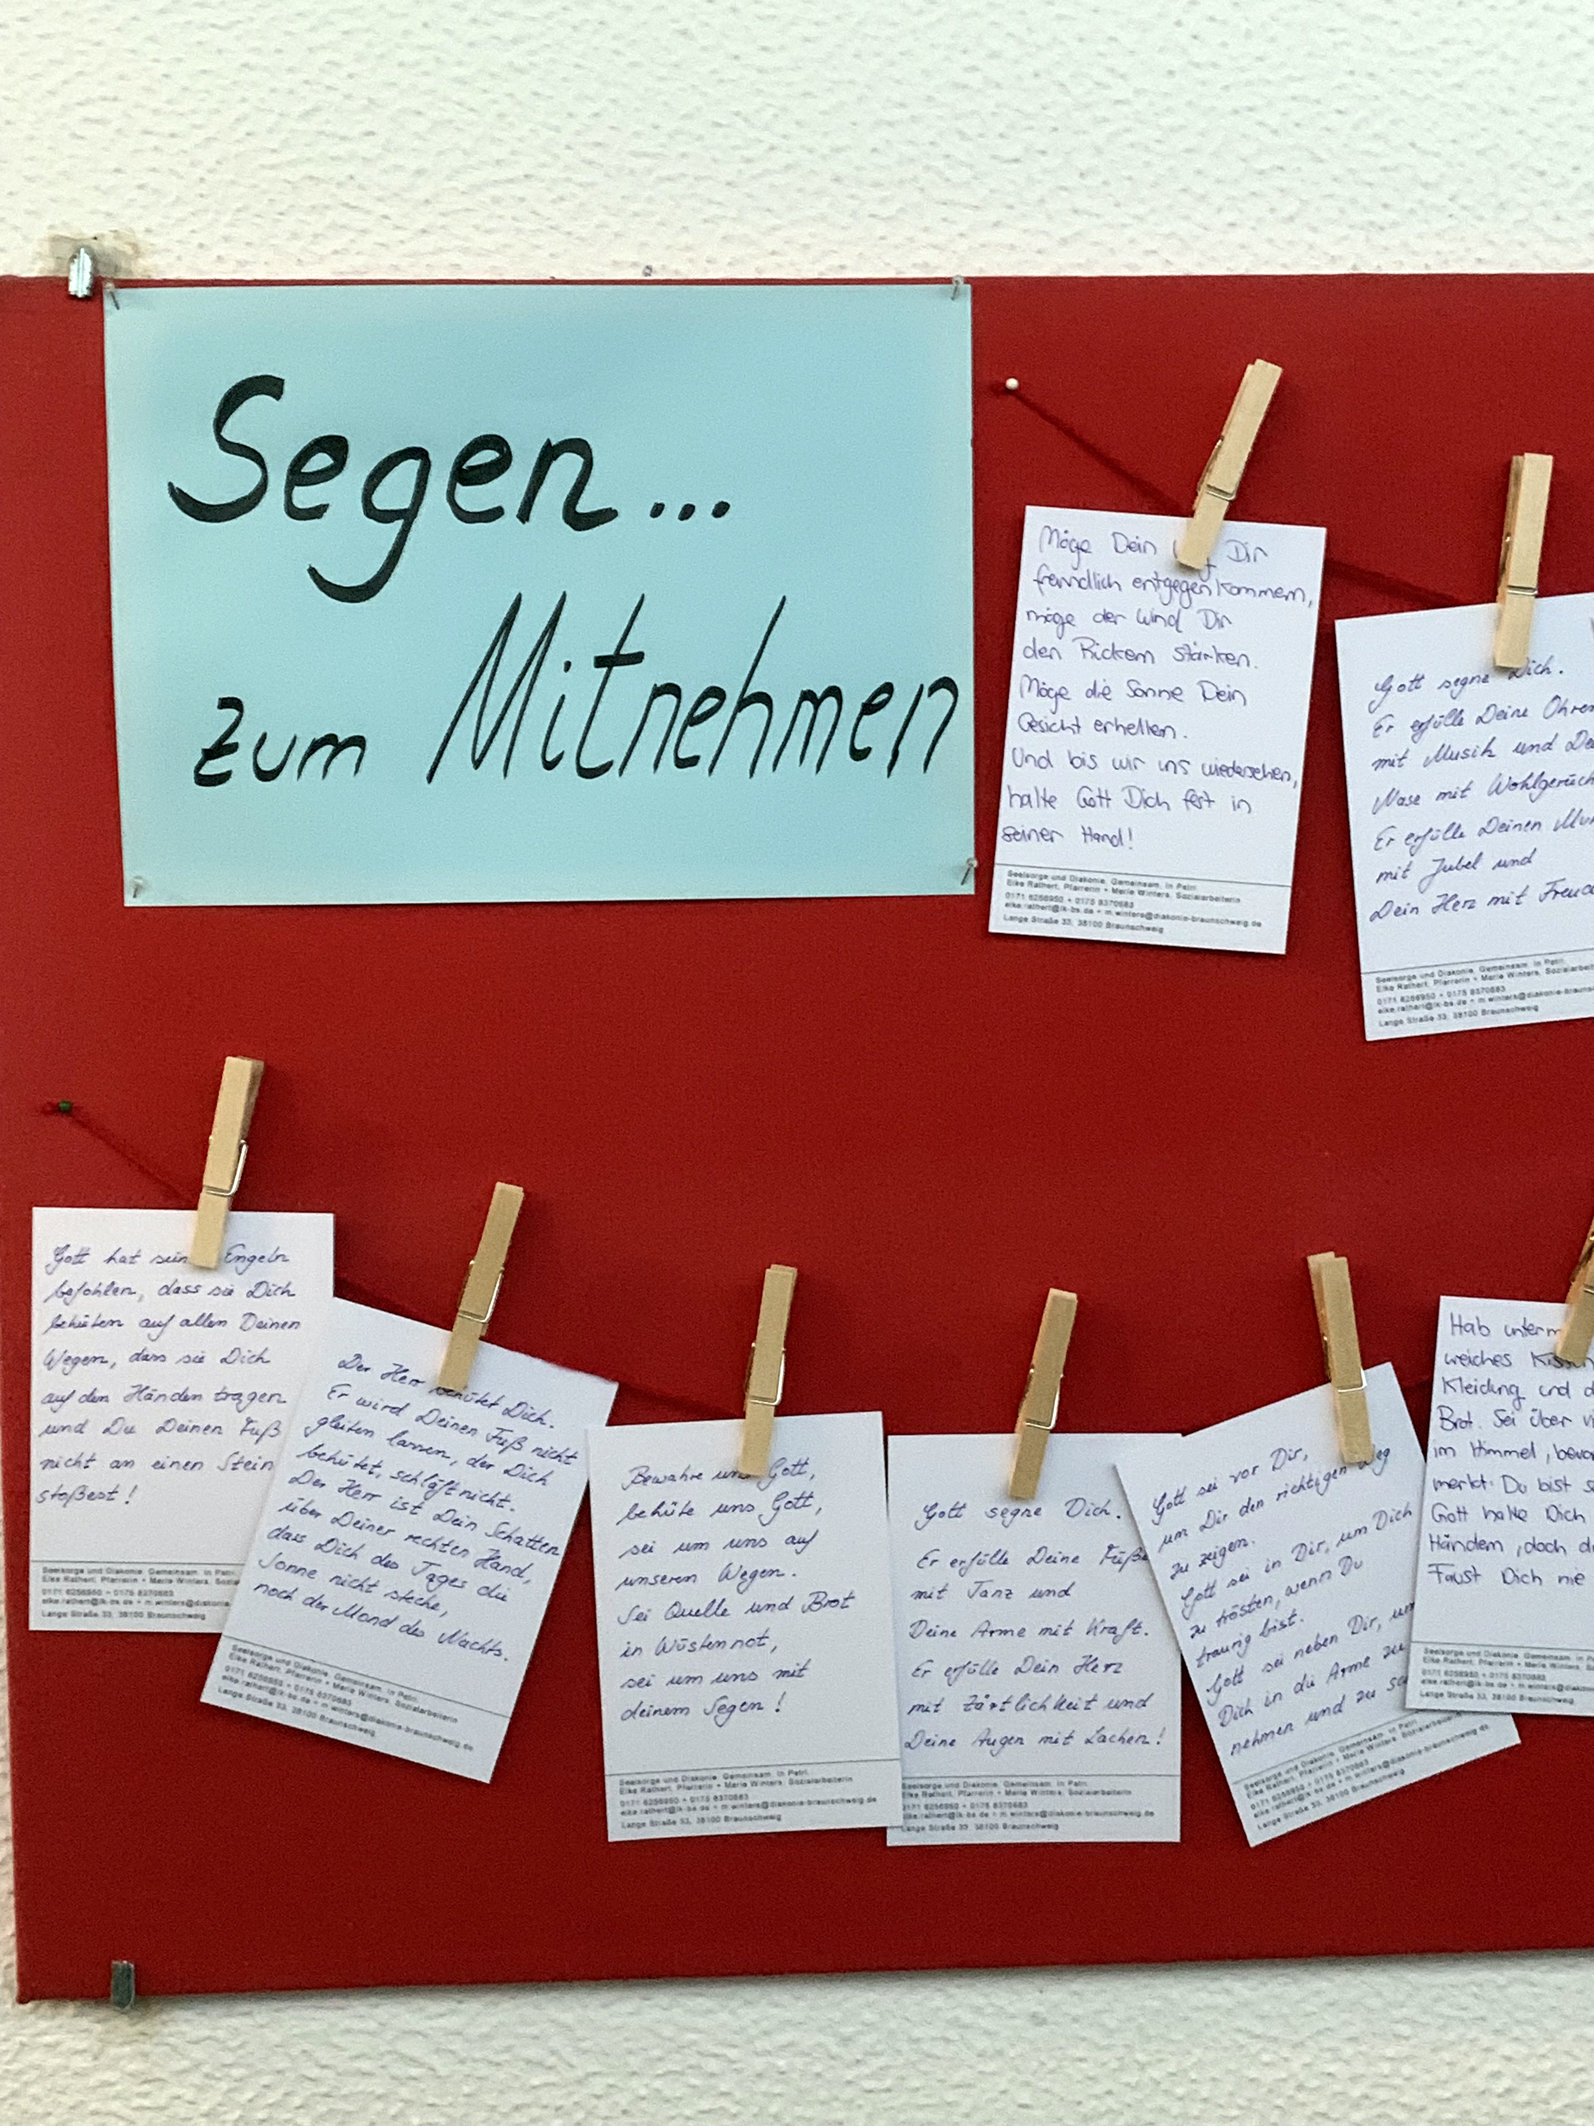 Segen...
zum Mitnehmen
Möge Dein Dir
freundlich entgegenkommen,
möge der Wind Dir
den Rücken stärken.
Möge die Sonne Dein
Gesicht erhellen.
Und bis wir uns wiedersehen,
halte Gott Dich fest in
seiner Hand!
Seelsorge und Diakonie. Gemeinsam. In Petri.
Elke Rathert, Pfarrerin • Merle Winters, Sozialarbeiterin
0171 6256950 • 0175 8370683
elke.rathert@lk-bs.de • m.winters@diakonie-braunschweig.de
Lange Straße 33, 38100 Braunschweig
Gott segne Dich.
Er erfülle Deine Ohren
mit Musik und
Nase mit
Er erfülle Deinen
mit Jubel und
Dein Herz mit
Seelsorge und Diakonie. Gemeinsam. In Petri.
Elke Rathert, Pfarrerin • Merle Winters,
0171 6256950 • 0175 8370683
elke.rathert@lk-bs.de
Lange Straße 33, 38100 Braunschweig
Gott hat Engeln
befohlen, dass sie Dich
behüten auf allen Deinen
Wegen, dass sie Dich
auf den Händen tragen
und Du Deinen Fuß
nicht an einen Stein
stoßest!
Seelsorge und Diakonie. Gemeinsam. In Petri.
Elke Rathert, Pfarrerin • Merle Winters,
0171 6256950 • 0175 8370683
Lange Straße 33, 38100 Braunschweig
Der Herr behütet Dich.
Er wird Deinen Fuß nicht
gleiten lassen, der Dich
behütet, schläft nicht.
Der Herr ist Dein Schatten
über Deiner rechten Hand,
dass Dich des Tages die
Sonne nicht steche,
noch der Mond des Nachts.
Seelsorge und Diakonie. Gemeinsam. In Petri.
Elke Rathert, Pfarrerin • Merle Winters, Sozialarbeiterin
0171 6256950 • 0175 8370683
elke.rathert@lk-bs.de • m.winters@diakonie-braunschweig.de
Lange Straße 33, 38100 Braunschweig
Bewahre uns Gott,
behüte uns Gott,
sei um uns auf
unseren Wegen.
Sei Quelle und Brot
in Wüstennot,
sei um uns mit
deinem Segen!
Seelsorge und Diakonie. Gemeinsam. In Petri.
Elke Rathert, Pfarrerin • Merle Winters, Sozialarbeiterin
0171 6256950 • 0175 8370683
elke.rathert@lk-bs.de • m.winters@diakonie-braunschweig.de
Lange Straße 33, 38100 Braunschweig
Gott segne Dich.
Er erfülle Deine Füße
mit Tanz und
Deine Arme mit Kraft.
Er erfülle Dein Herz
mit Zärtlichkeit und
Deine Augen mit Lachen!
Seelsorge und Diakonie. Gemeinsam. In Petri.
Elke Rathert, Pfarrerin • Merle Winters, Sozialarbeiterin
0171 6256950 • 0175 8370683
elke.rathert@lk-bs.de • m.winters@diakonie-braunschweig.de
Lange Straße 33, 38100 Braunschweig
Gott sei vor Dir,
um Dir den richtigen Weg
zu zeigen.
Gott sei in Dir, um Dich
zu trösten, wenn Du
traurig bist.
Gott sei neben Dir, um
Dich in die Arme zu
nehmen und zu
Seelsorge und Diakonie. Gemeinsam. In Petri.
Elke Rathert, Pfarrerin • Merle Winters, Sozialarbeiterin
0171 6256950 • 0175 8370683
elke.rathert@lk-bs.de • m.winters@diakonie-braunschweig.de
Lange Straße 33, 38100 Braunschweig
Hab
weiches Kissen
Kleidung und
Brot. Sei über
im Himmel,
merkt: Du bist
Gott halte Dich
Händen, doch
Faust Dich nie
Seelsorge und Diakonie. Gemeinsam. In
Elke Rathert, Pfarrerin • Merle Winters,
0171 6256950 • 0175 8370683
elke.rathert@lk-bs.de
Lange Straße 33, 38100 Braunschweig